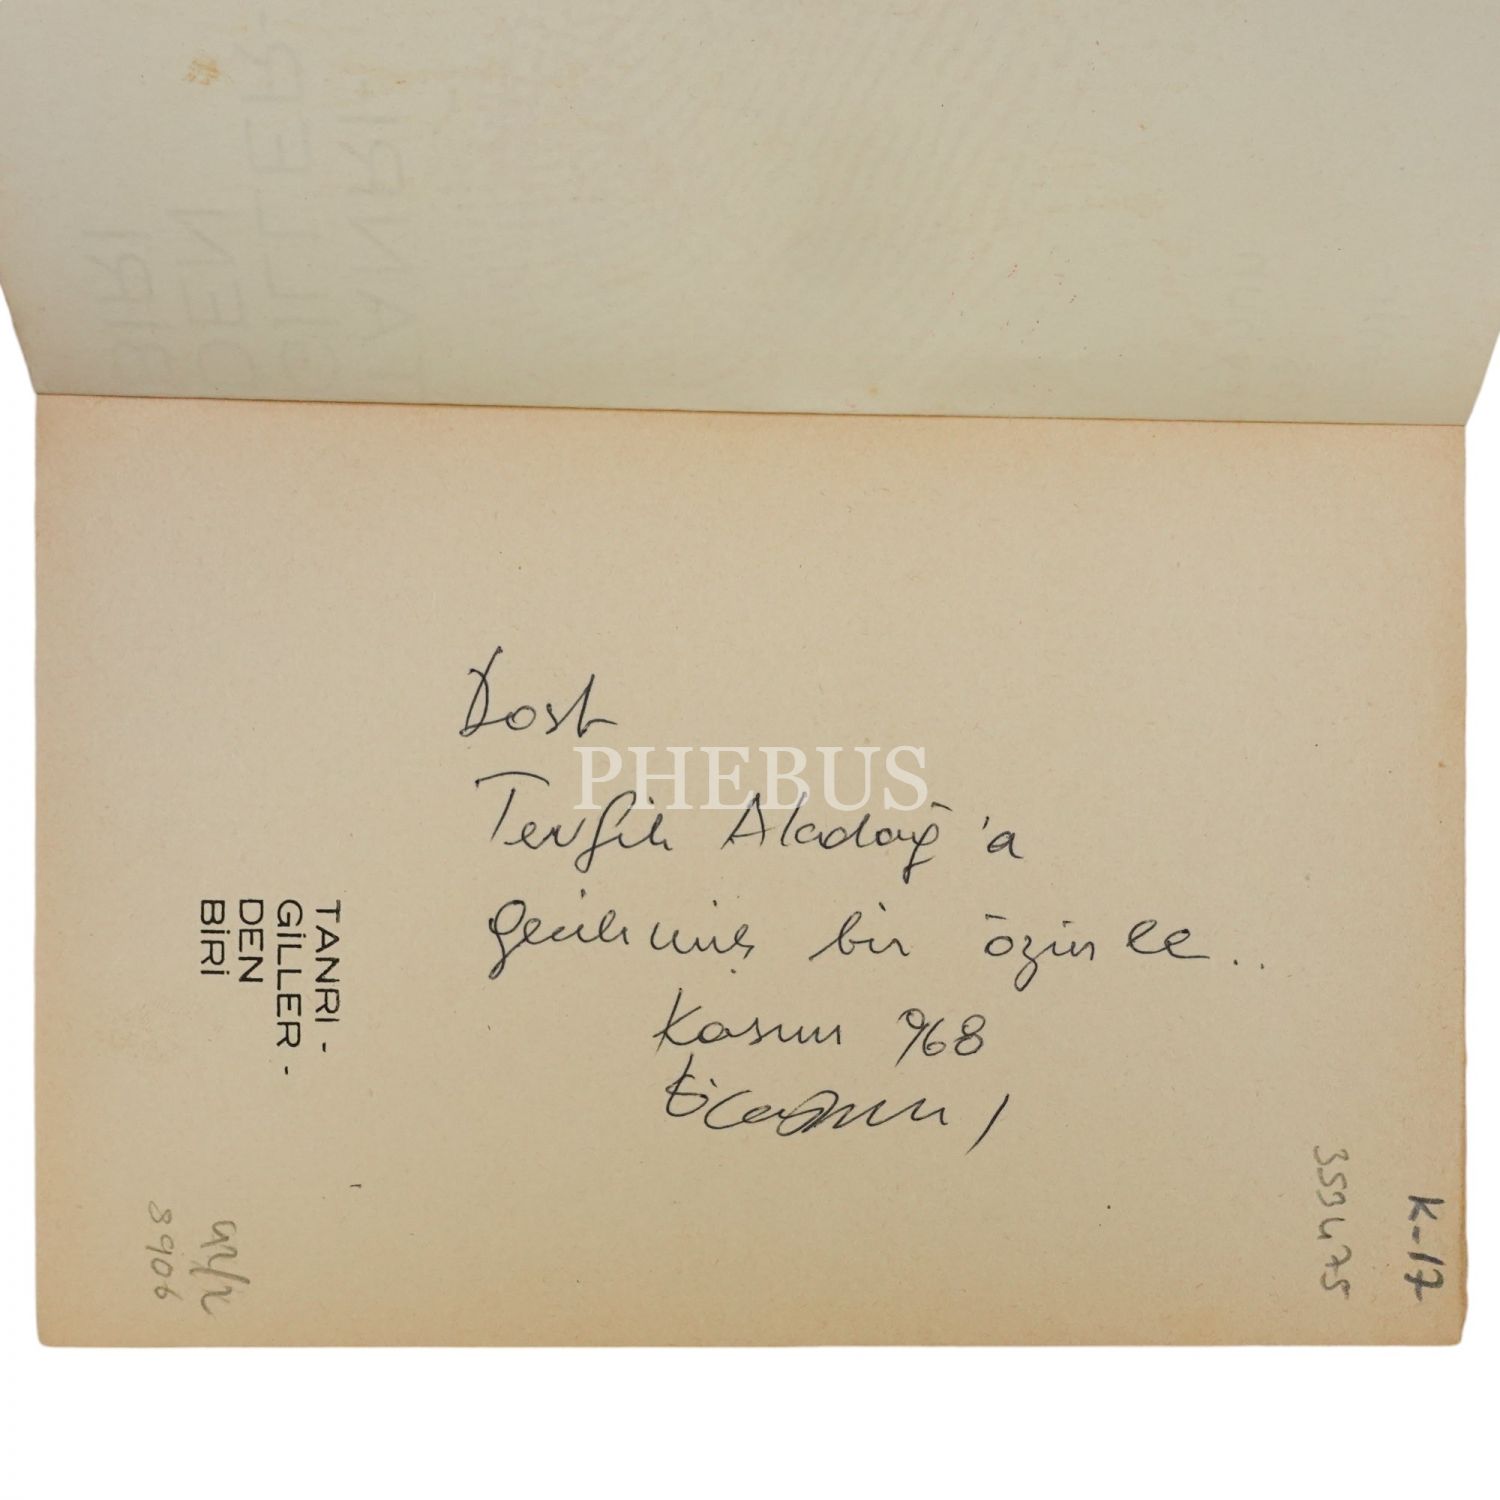 Dost
PHEBUS
Tevfik Aladağ'a
gecikmiş bir özürle..
Kasım 968
TANRI-
GİLLER-
DEN
BİRİ
8906
353475
K-17